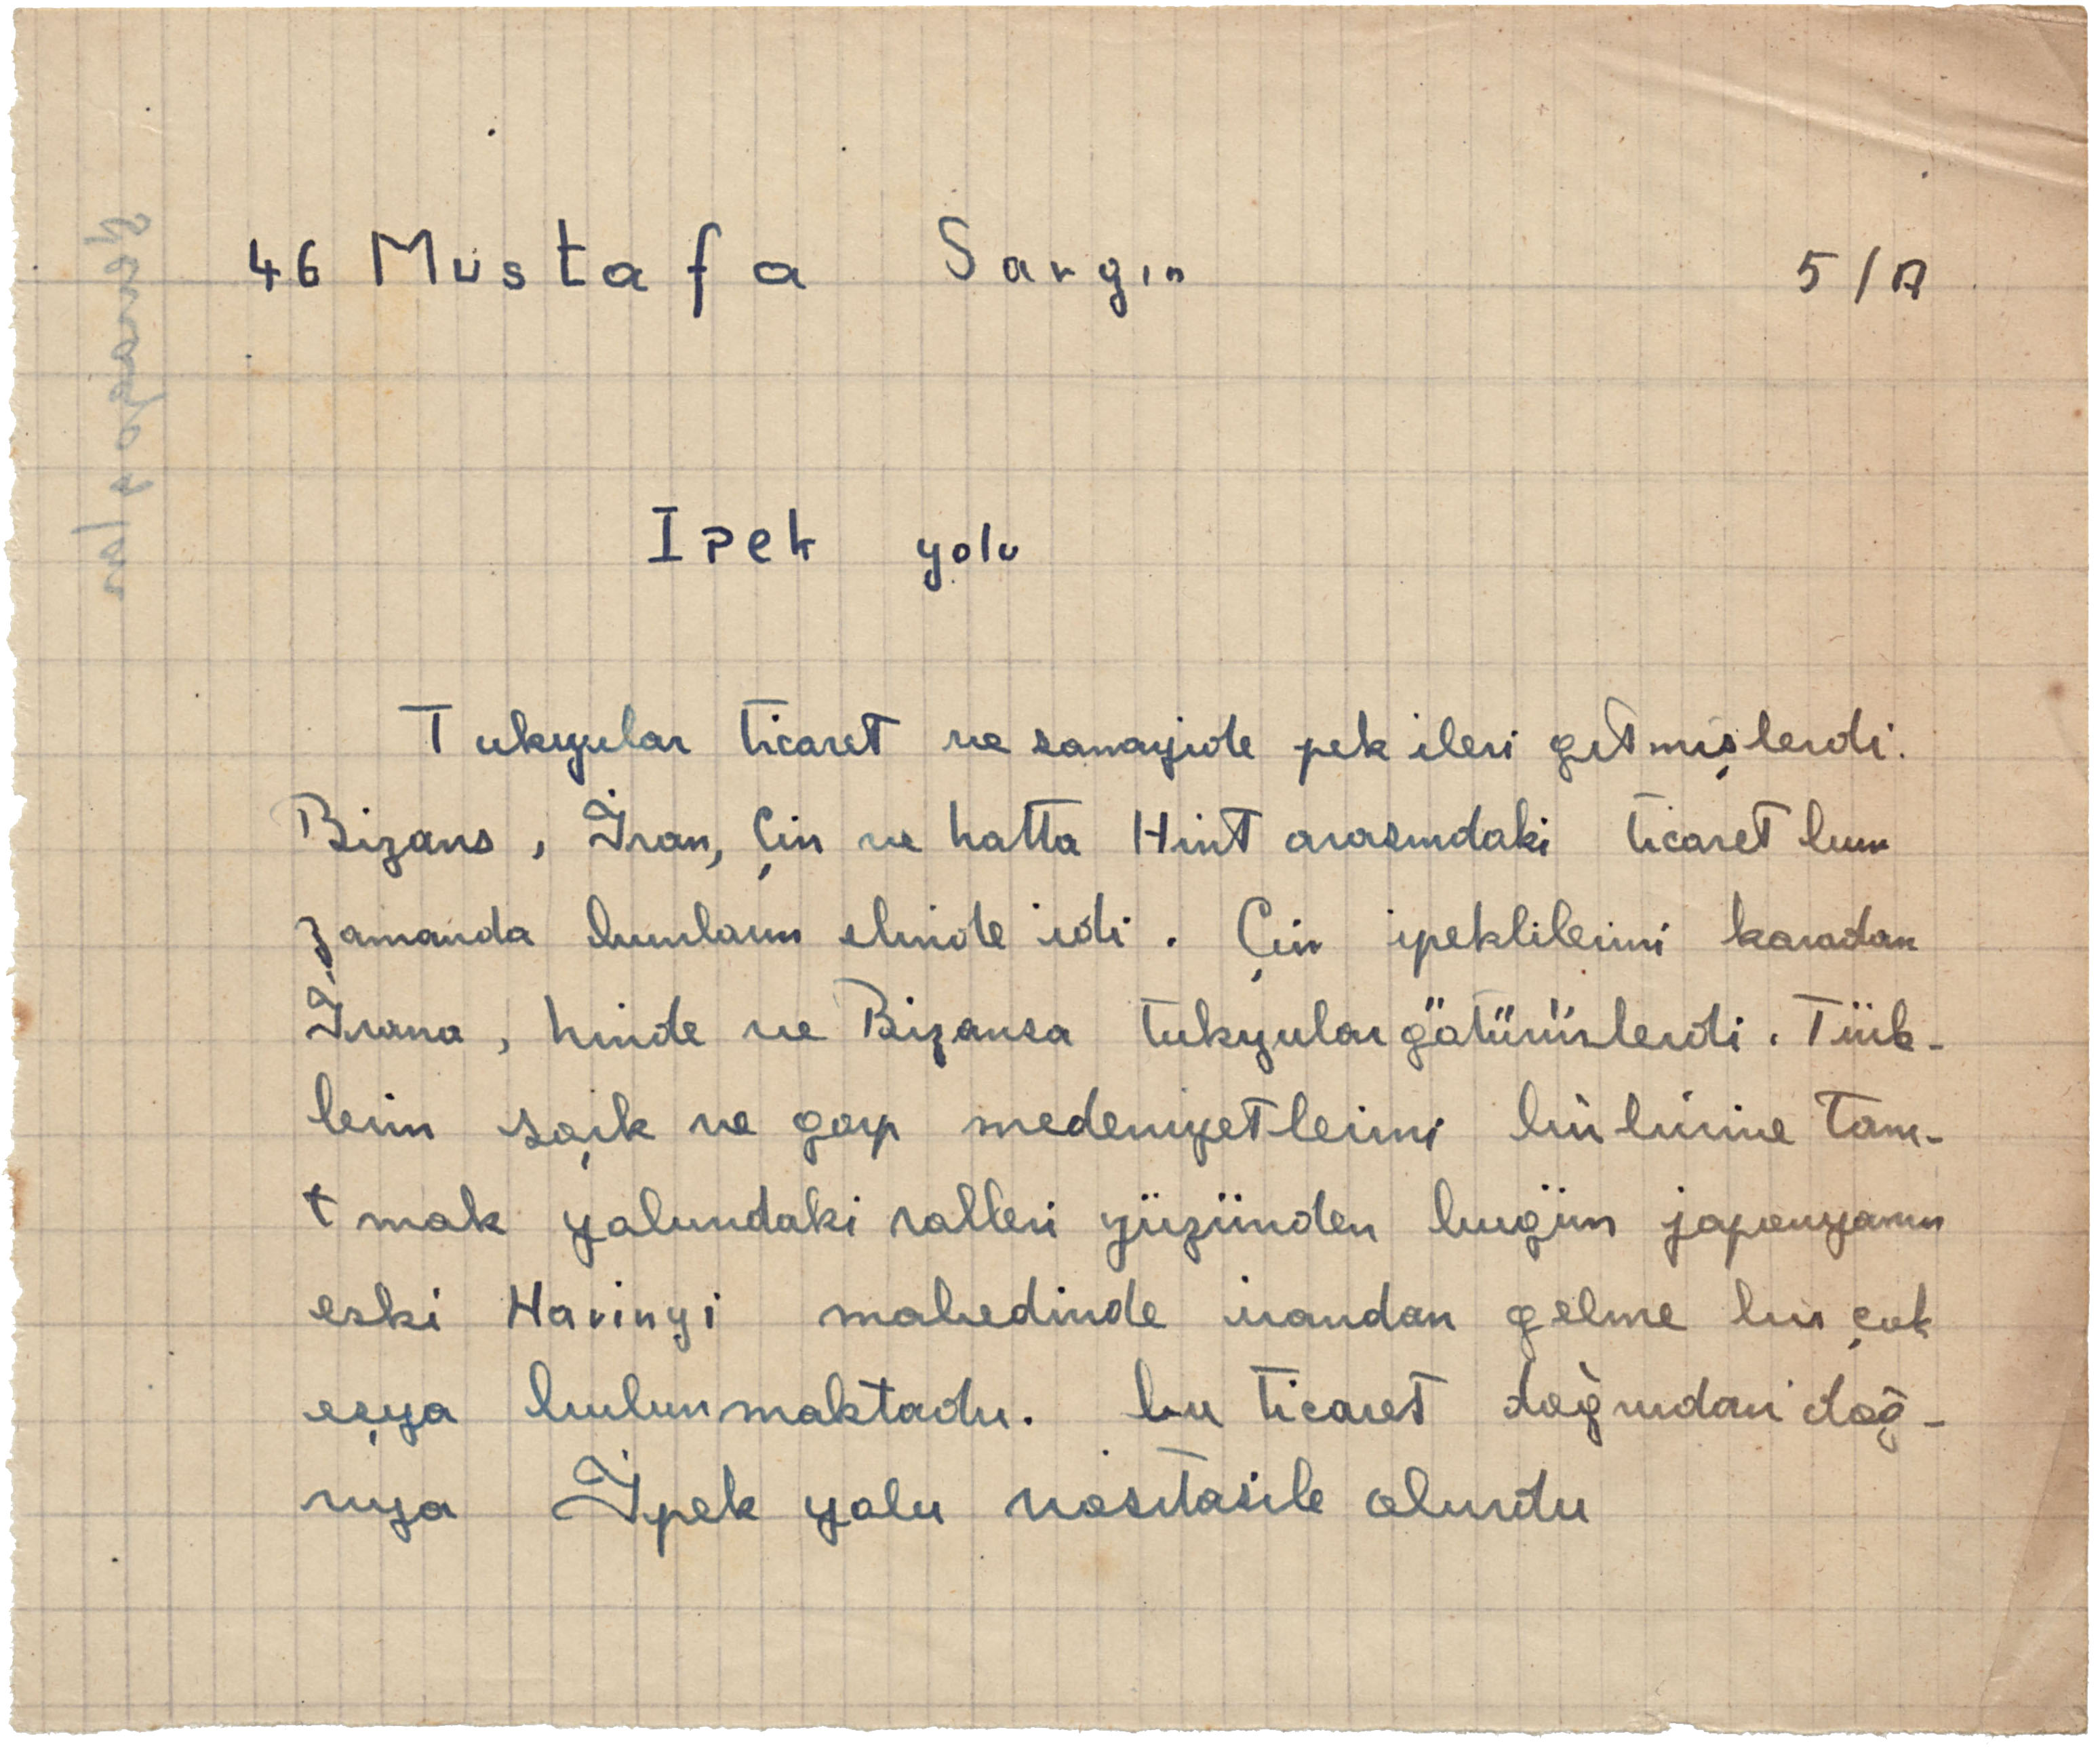 46 Mustafa Sargın 5/A
Ipek yolu
Tukyular ticaret ve sanayide pek ileri gitmişlerdi.
Bizans, İran, Çin ve hatta Hint arasındaki ticaret bir
zamanda bunların elinde idi. Çin ipeklilerini karadan
İrana, hinde ve Bizansa tukyular götürürlerdi. Türk-
lerin şark ve garp medeniyetlerini biribirine tanı-
tmak yolundaki rolleri yüzünden bugün japonyanın
eski mabedinde irandan gelme bir çok
eşya bulunmaktadır. bu ticaret doğrudan doğ-
ruya İpek yolu vasıtasile olurdu